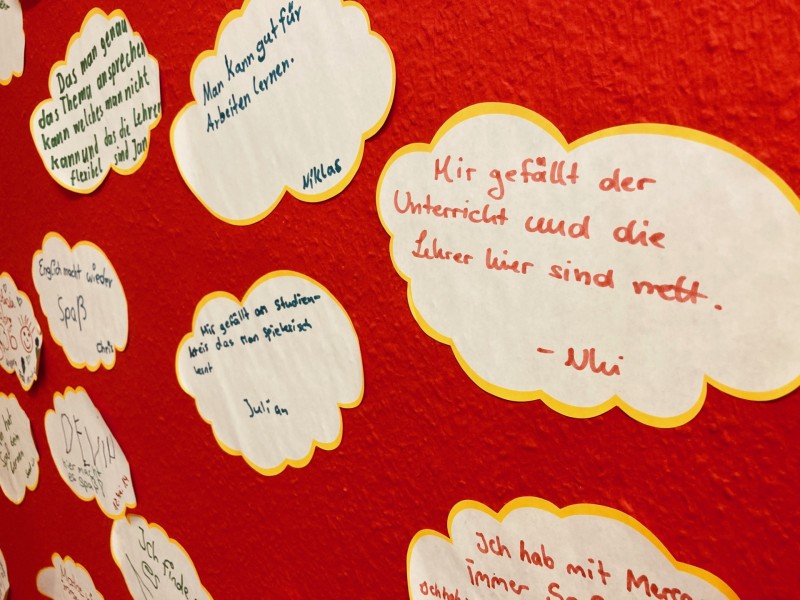 Das man genau
das Thema ansprechen
kann welches man nicht
kann und das die Lehrer
flexibel sind Jan
Man kann gut für
Arbeiten lernen.
Niklas
Mir gefällt der
Unterricht und die
Lehrer hier sind nett.
- Nhi
Englich macht wieder
Spaß
Chris
Mir gefällt an Studien-
kreis das man spielerisch
lernt
Julian
DELIN
hier macht
es Spaß
Ich finde
Ich hab mit
immer